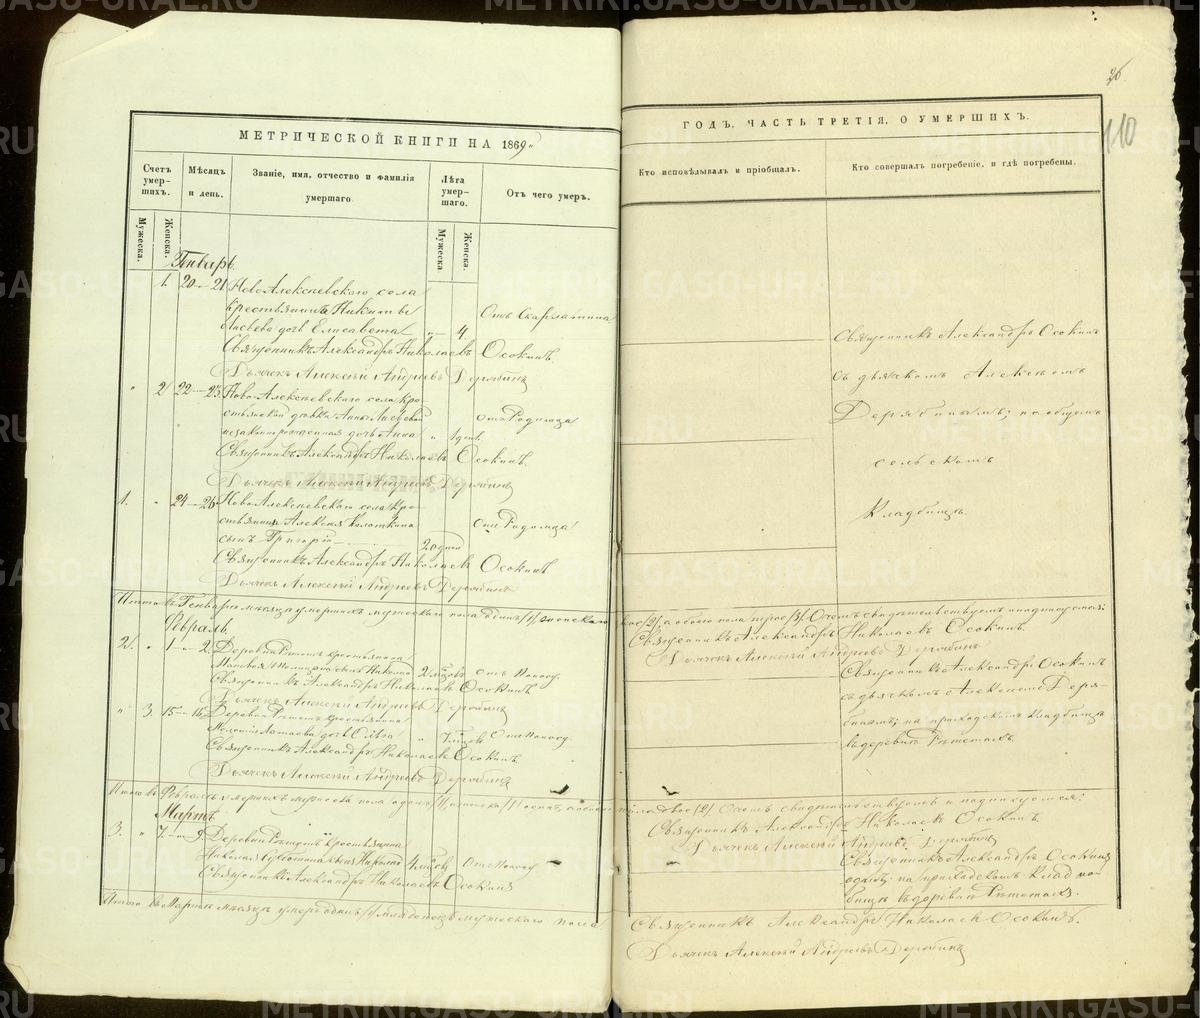 26.
110
МЕТРИЧЕСКОЙ КНИГИ НА 1869
ГОДЪ, ЧАСТЬ ТРЕТІЯ, О УМЕРШИХЪ.
Счетъ умер-
шихъ.
Мужеска.
Женска.
Мѣсяцъ
и день.
Званіе, имя, отчество и фамилія
умершаго
Лѣта
умер-
шаго.
Мужеска.
Женска.
Отъ чего умеръ.
Кто исповѣдывалъ и пріобщалъ.
Кто совершалъ погребеніе, и гдѣ погребены.
Генварь.
1. 20 — 21 Ново Алексѣевскаго села
крестьянина Никиты
дочь Елисавета 4 Отъ Скарлатины
Священникъ Александръ Николаевъ Осокинъ.
Дьячекъ Алексѣй Андреевъ Дерябинъ
" 2. 22 — 23. Ново-Алексѣевскаго села кре-
стьянской дѣвки Анны
незаконнорожденная дочь Анна " 1 дня. отъ Родимца
Священникъ Александръ Николаевъ Осокинъ.
Дьячекъ Алексѣй Андреевъ Дерябинъ
1. " 24 — 26. Ново-Алексѣевскаго села кре-
стьянина Алексѣя
сынъ Григорій 20 дней Отъ Родимца
Священникъ Александръ Николаевъ Осокинъ
Дьячекъ Алексѣй Андреевъ Дерябинъ
Священникъ Александръ Осокинъ
съ дьячкомъ Алексѣемъ
Дерябинымъ; на общемъ
сельскомъ
кладбищѣ.
Итого въ Генварѣ мѣсяцѣ умершихъ мужескаго пола одинъ /1/ женскаго двое /2/, а обоего пола трое /3/. Въ чемъ свидѣтельствуемъ и подписуемся:
Священникъ Александръ Николаевъ Осокинъ.
Дьячекъ Алексѣй Андреевъ Дерябинъ
Февраль
2. " 1 — 2. Деревни Рѣшетъ крестьянина
Николай 2 мѣсяц. Отъ поносу.
Священникъ Александръ Николаевъ Осокинъ
Дьячекъ Алексѣй Андреевъ Дерябинъ
" 3. 15 — 16. Деревни Рѣшетъ крестьянина
дочь Ольга " 7 мѣсяц. Отъ поносу.
Священникъ Александръ Николаевъ Осокинъ
Дьячекъ Алексѣй Андреевъ Дерябинъ
Священникъ Александръ Осокинъ
съ дьячкомъ Алексѣемъ Деря-
бинымъ; на приходскомъ кладбищѣ
въ деревнѣ Рѣшетахъ.
Итого въ Февралѣ умершихъ мужеска пола одинъ /1/ женска /1/ обоего пола двое /2/. Въ чемъ свидѣтельствуемъ и подписуемся:
Священникъ Александръ Николаевъ Осокинъ.
Дьячекъ Алексѣй Андреевъ Дерябинъ
Мартъ
3. " 7. — 9. Деревни Рѣшетъ крестьянина
Николая сынъ 4 мѣсяц. Отъ поносу.
Священникъ Александръ Николаевъ Осокинъ
Священникъ Александръ Осокинъ
одинъ; на приходскомъ клад-
бищѣ въ деревнѣ Рѣшетахъ.
Итого въ Мартѣ мѣсяцѣ умеръ одинъ /1/ младенецъ мужескаго пола
Священникъ Александръ Николаевъ Осокинъ.
Дьячекъ Алексѣй Андреевъ Дерябинъ
METRIKI.GASO-URAL.RU